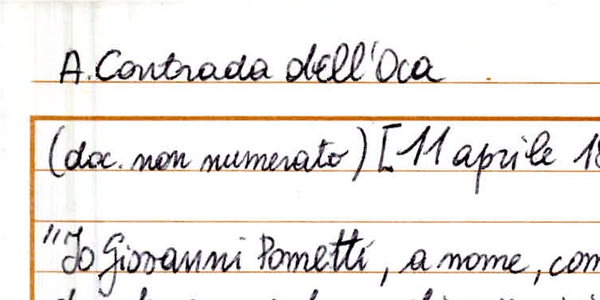 A. Contrada dell'Oca
(doc. non numerato) [11 aprile 18
"Io Giovanni Pometti, a nome, com